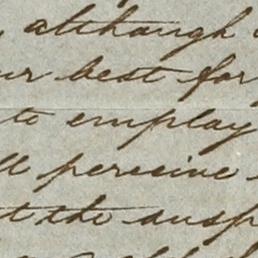 , although
ur best for
to employ
ll perceive
t the susp